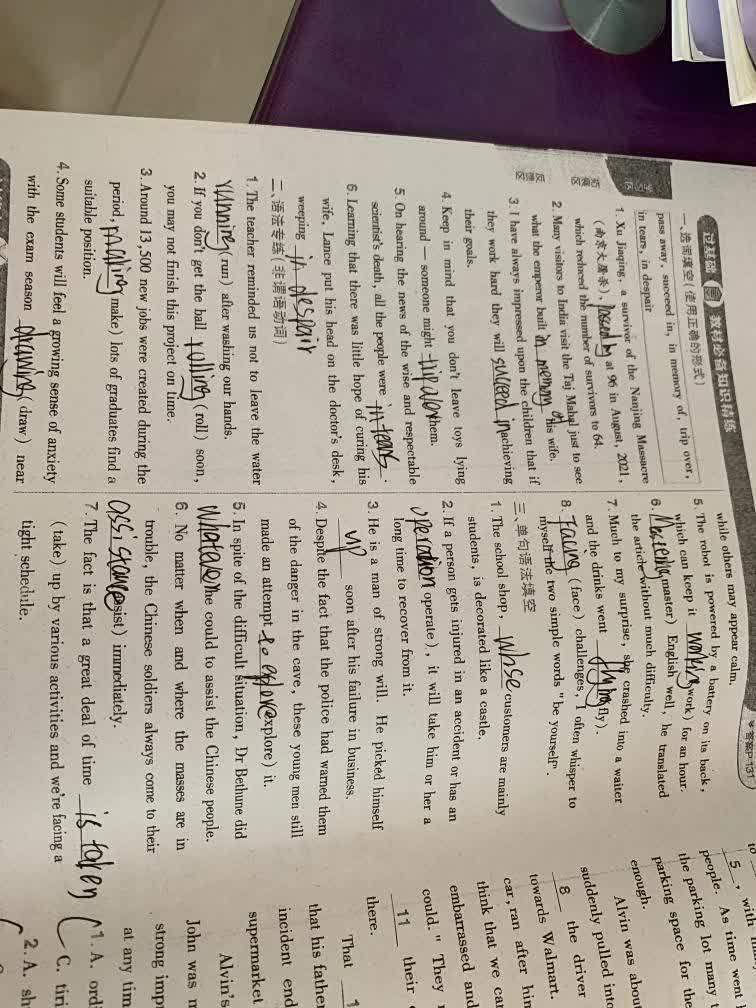 过基础 教材必备知识精练
★答案P·131
一、选词填空(使用正确的形式)
pass away, succeed in, in memory of, trip over,
in tears, in despair
1. Xu Jiaqing, a survivor of the Nanjing Massacre
(南京大屠杀), at 96 in August, 2021,
which reduced the number of survivors to 64.
2. Many visitors to India visit the Taj Mahal just to see
what the emperor built in memory of his wife.
3. I have always impressed upon the children that if
they work hard they will succeed in achieving
their goals.
4. Keep in mind that you don't leave toys lying
around — someone might them.
5. On hearing the news of the wise and respectable
scientist's death, all the people were in tears.
6. Learning that there was little hope of curing his
wife, Lance put his head on the doctor's desk,
weeping in despair
二、语法专练(非谓语动词)
1. The teacher reminded us not to leave the water
running (run) after washing our hands.
2. If you don't get the ball rolling (roll) soon,
you may not finish this project on time.
3. Around 13,500 new jobs were created during the
period, making make) lots of graduates find a
suitable position.
4. Some students will feel a growing sense of anxiety
with the exam season drawing (draw) near
while others may appear calm.
5. The robot is powered by a battery on its back,
which can keep it working work) for an hour.
6. (master) English well, he translated
the article without much difficulty.
7. Much to my surprise, she crashed into a waiter
and the drinks went flying fly).
8. Facing (face) challenges, I often whisper to
myself the two simple words "be yourself".
三、单句语法填空
1. The school shop, whose customers are mainly
students, is decorated like a castle.
2. If a person gets injured in an accident or has an
operation operate), it will take him or her a
long time to recover from it.
3. He is a man of strong will. He picked himself
up soon after his failure in business.
4. Despite the fact that the police had warned them
of the danger in the cave, these young men still
made an attempt to explore explore) it.
5. In spite of the difficult situation, Dr Bethune did
whatever he could to assist the Chinese people.
6. No matter when and where the masses are in
trouble, the Chinese soldiers always come to their
assistance assist) immediately.
7. The fact is that a great deal of time is taken
(take) up by various activities and we're facing a
tight schedule.
5, with many
people. As time went
the parking lot many
parking space for the
enough.
Alvin was about
suddenly pulled into
8 the driver
towards Walmart.
car, ran after him
think that we ca
embarrassed and
could." They
11 their
there.
That
that his father
incident end
supermarket
Alvin's
John was
strong imp
at any tim
1. A. ord
C. tiri
2. A. sh